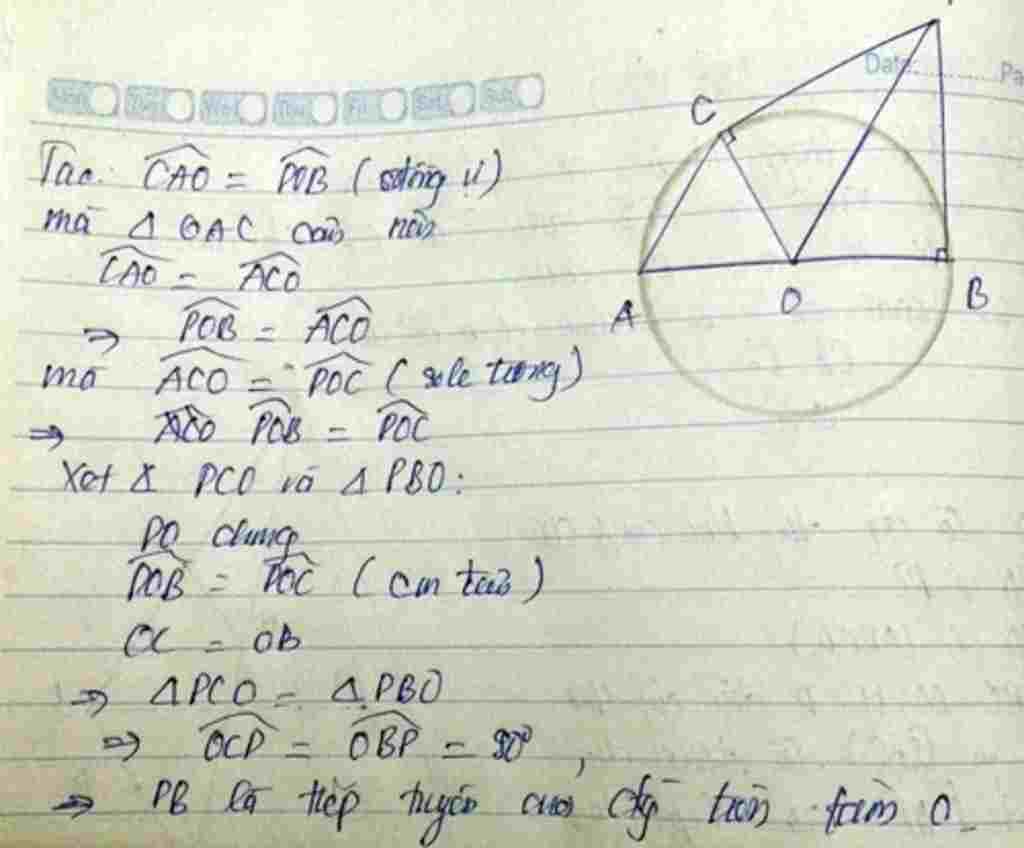 Date:
Pa
Mon Tue Wed Thu Fri Sat Sun
C
A O B
Ta có: CAO = POB (đồng vị)
mà Δ OAC cân nên
CAO = ACO
⇒ POB = ACO
mà ACO = POC (sole trong)
⇒ POB = POC
Xét Δ PCO và Δ PBO:
PO chung
POB = POC (cm trên)
OC = OB
⇒ ΔPCO = ΔPBO
⇒ OCP = OBP = 90°
⇒ PB là tiếp tuyến của đg tròn tâm O